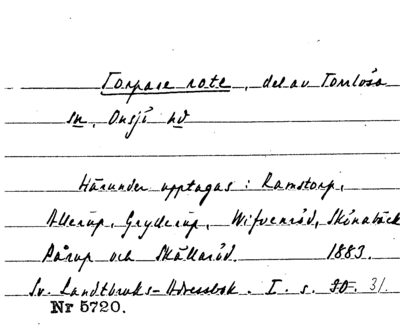 Torpare rote, del av Torrlösa
sn, Onsjö hd
Härunder upptagas: Ramstorp,
Allerup, Gryderup, Wifvenröd, Skönabäck
Pårup och Skällaröd. 1883.
Sv. Landtbruks-Adressbok. I. s. 30. 31.
Nr 5720.